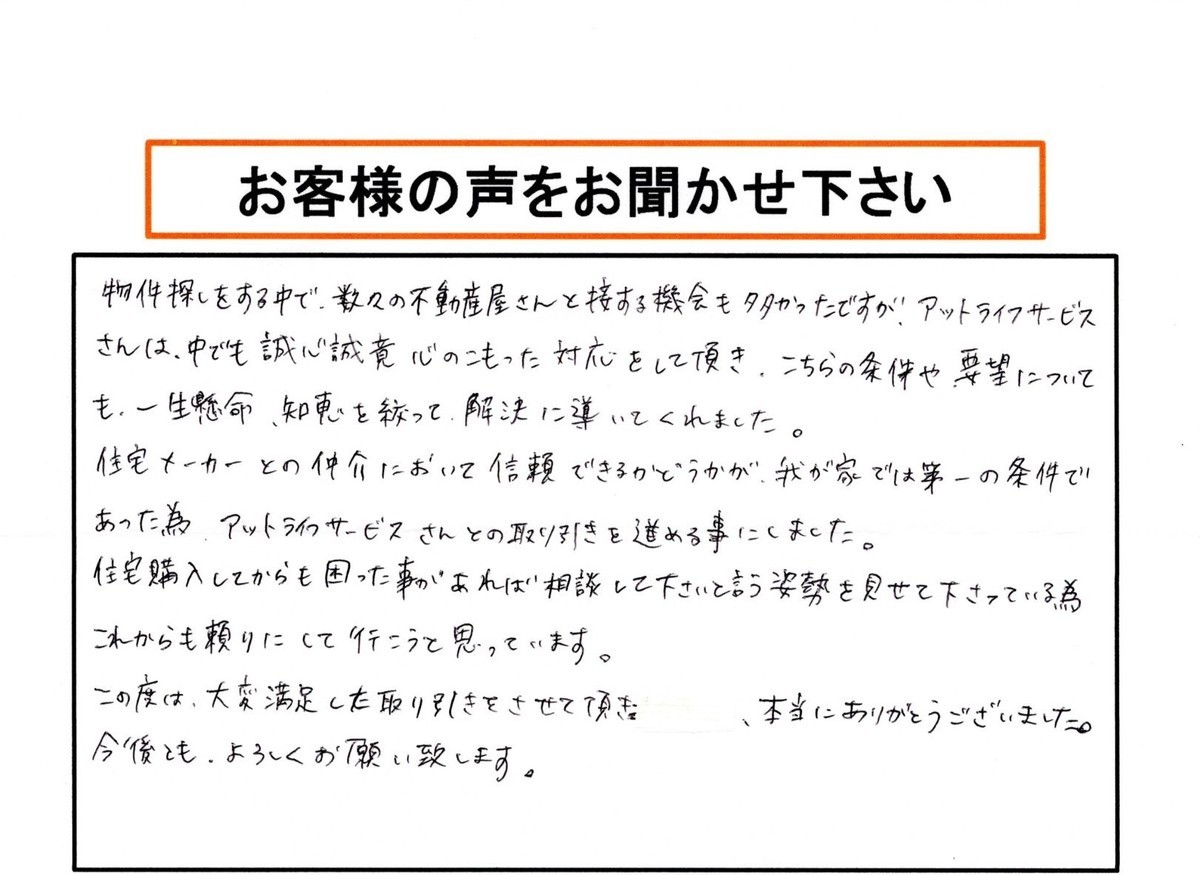 お客様の声をお聞かせ下さい
物件探しをする中で、数々の不動産屋さんと接する機会も多かったですが、アットライフサービス
さんは、中でも誠心誠意 心のこもった対応をして頂き、こちらの条件や要望について
も、一生懸命、知恵を絞って、解決に導いてくれました。
住宅メーカーとの仲介において信頼できるかどうかが、我が家では第一の条件で
あった為、アットライフサービスさんとの取り引きを進める事にしました。
住宅購入してからも困った事があれば相談して下さいと言う姿勢を見せて下さっている為
これからも頼りにして行こうと思っています。
この度は、大変満足した取り引きをさせて頂き、本当にありがとうございました。
今後とも、よろしくお願い致します。